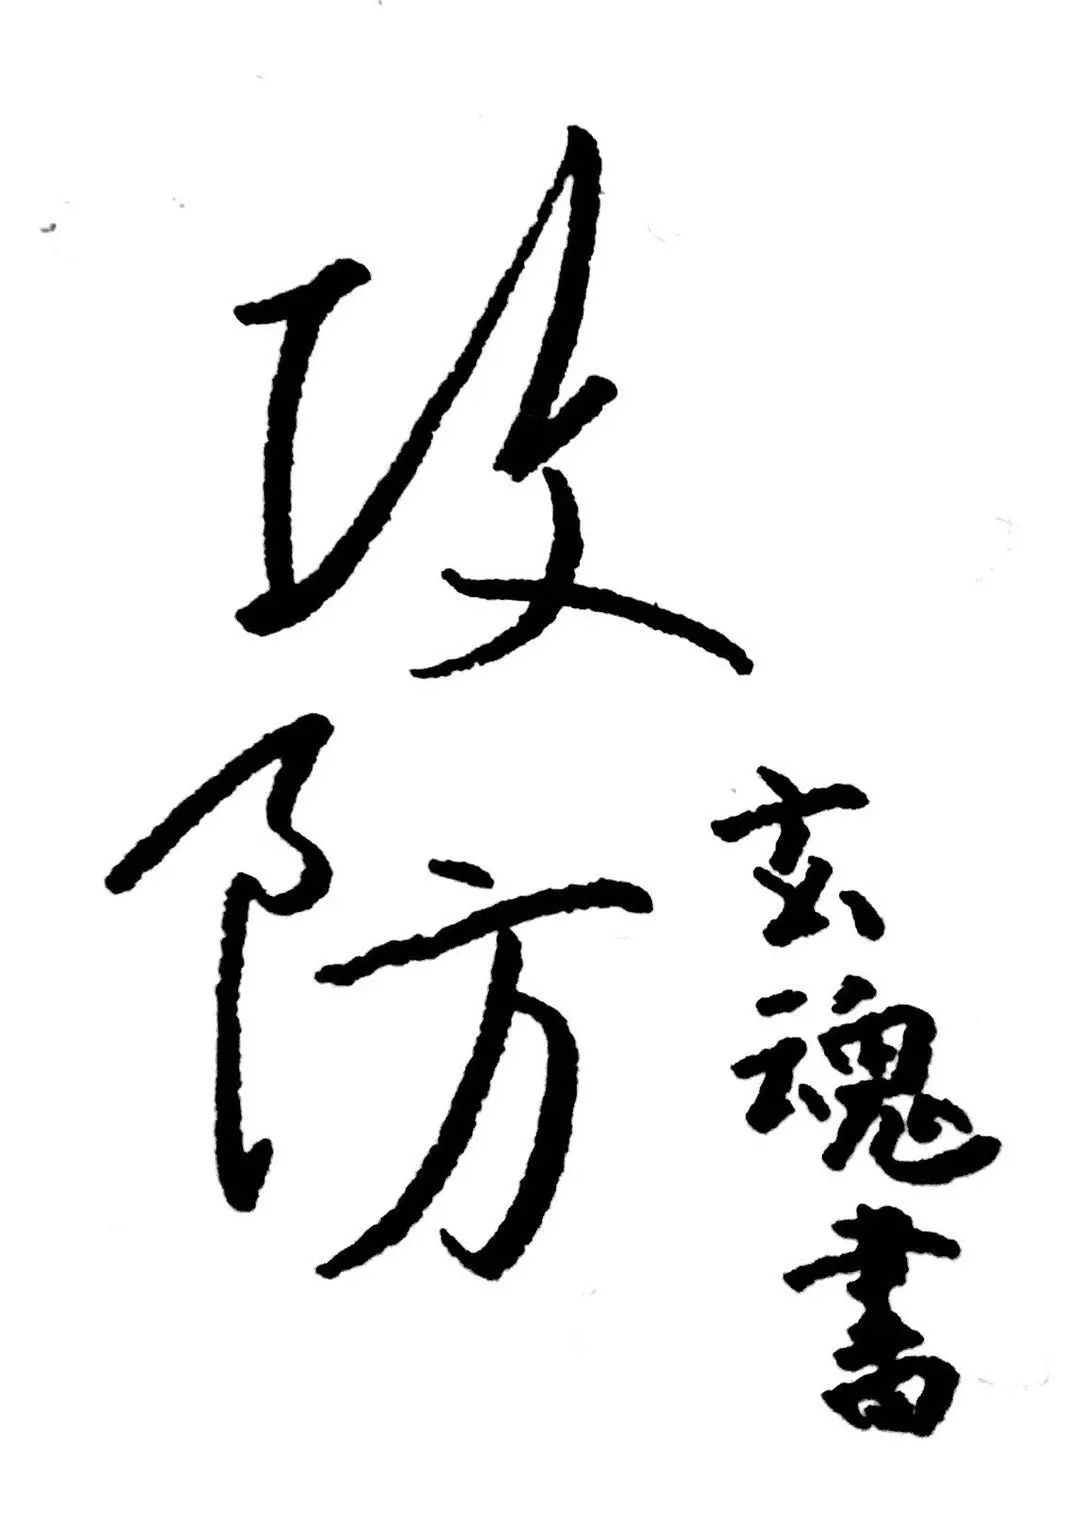 攻防
玄魂書